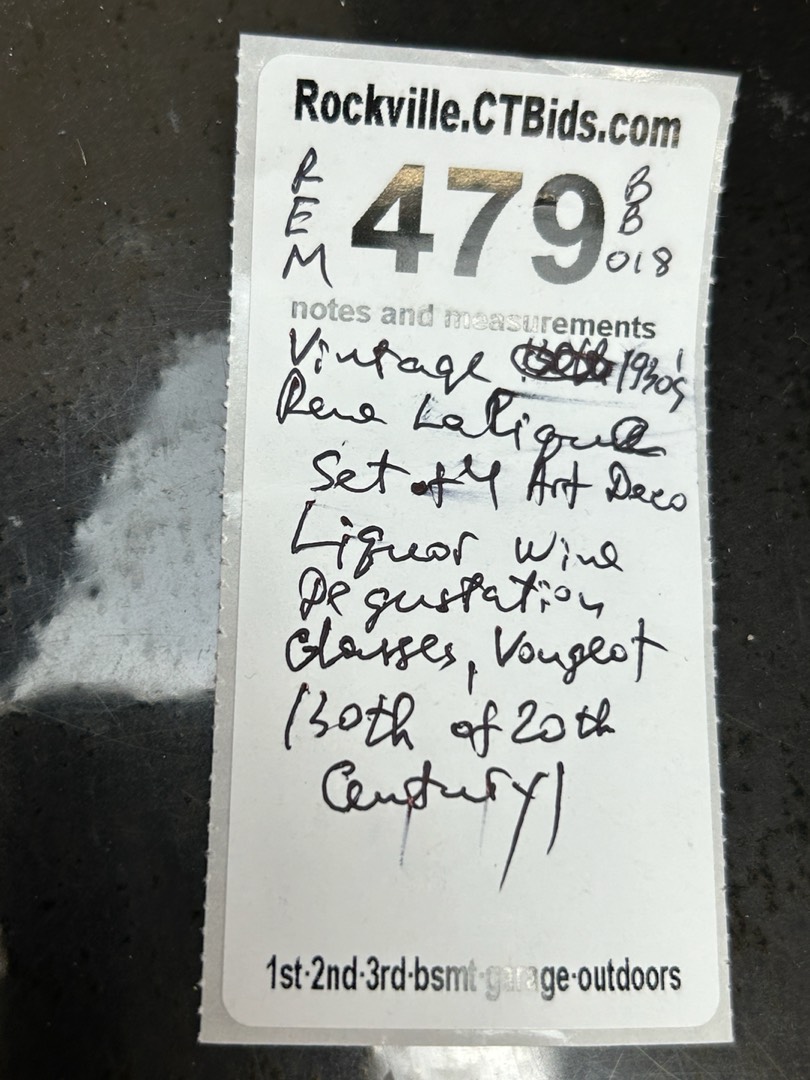 Rockville.CTBids.com
REM 479 BB 018
notes and measurements
Vintage 1930's
Rene Lalique
Set of 4 Art Deco
Liquor Wine
Degustation
Glasses, Vougeot
/30th of 20th
Century/
1st·2nd·3rd·bsmt·garage·outdoors